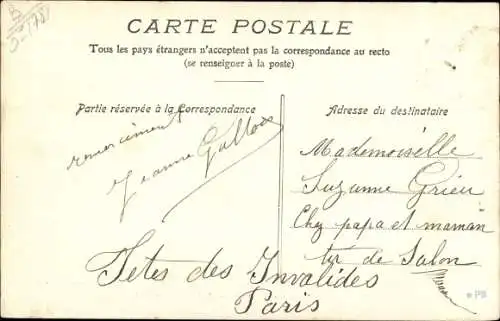 CARTE POSTALE
Tous les pays étrangers n'acceptent pas la correspondance au recto
(se renseigner à la poste)
Partie réservée à la Correspondance
Adresse du destinataire
remerciements
Jeanne Gallois
Mademoiselle
Suzanne Grieu
Chez papa et maman
tir de Salon
Fetes des Invalides
Paris